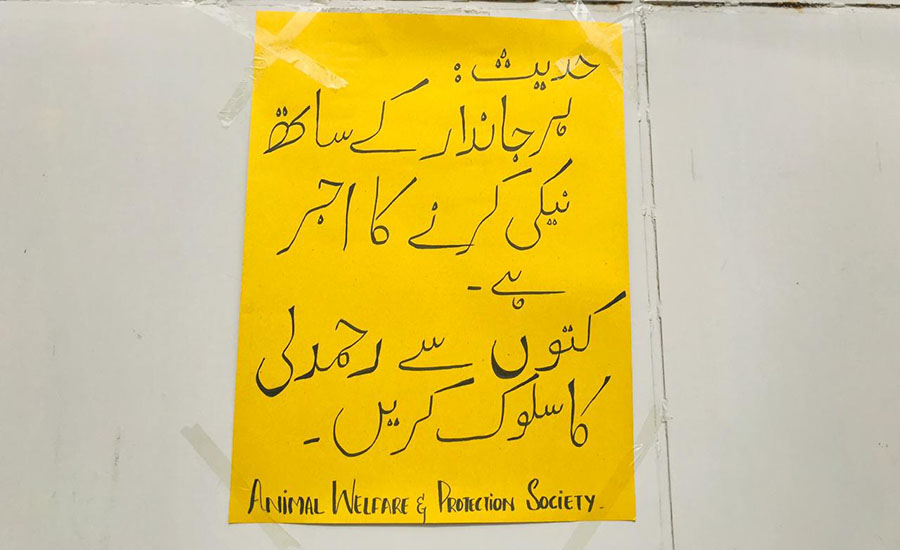 حدیث :
ہر جاندار کے ساتھ
نیکی کرنے کا اجر
ہے ۔
کتوں سے رحمدلی
کا سلوک کریں ۔
ANIMAL WELFARE & PROTECTION SOCIETY.